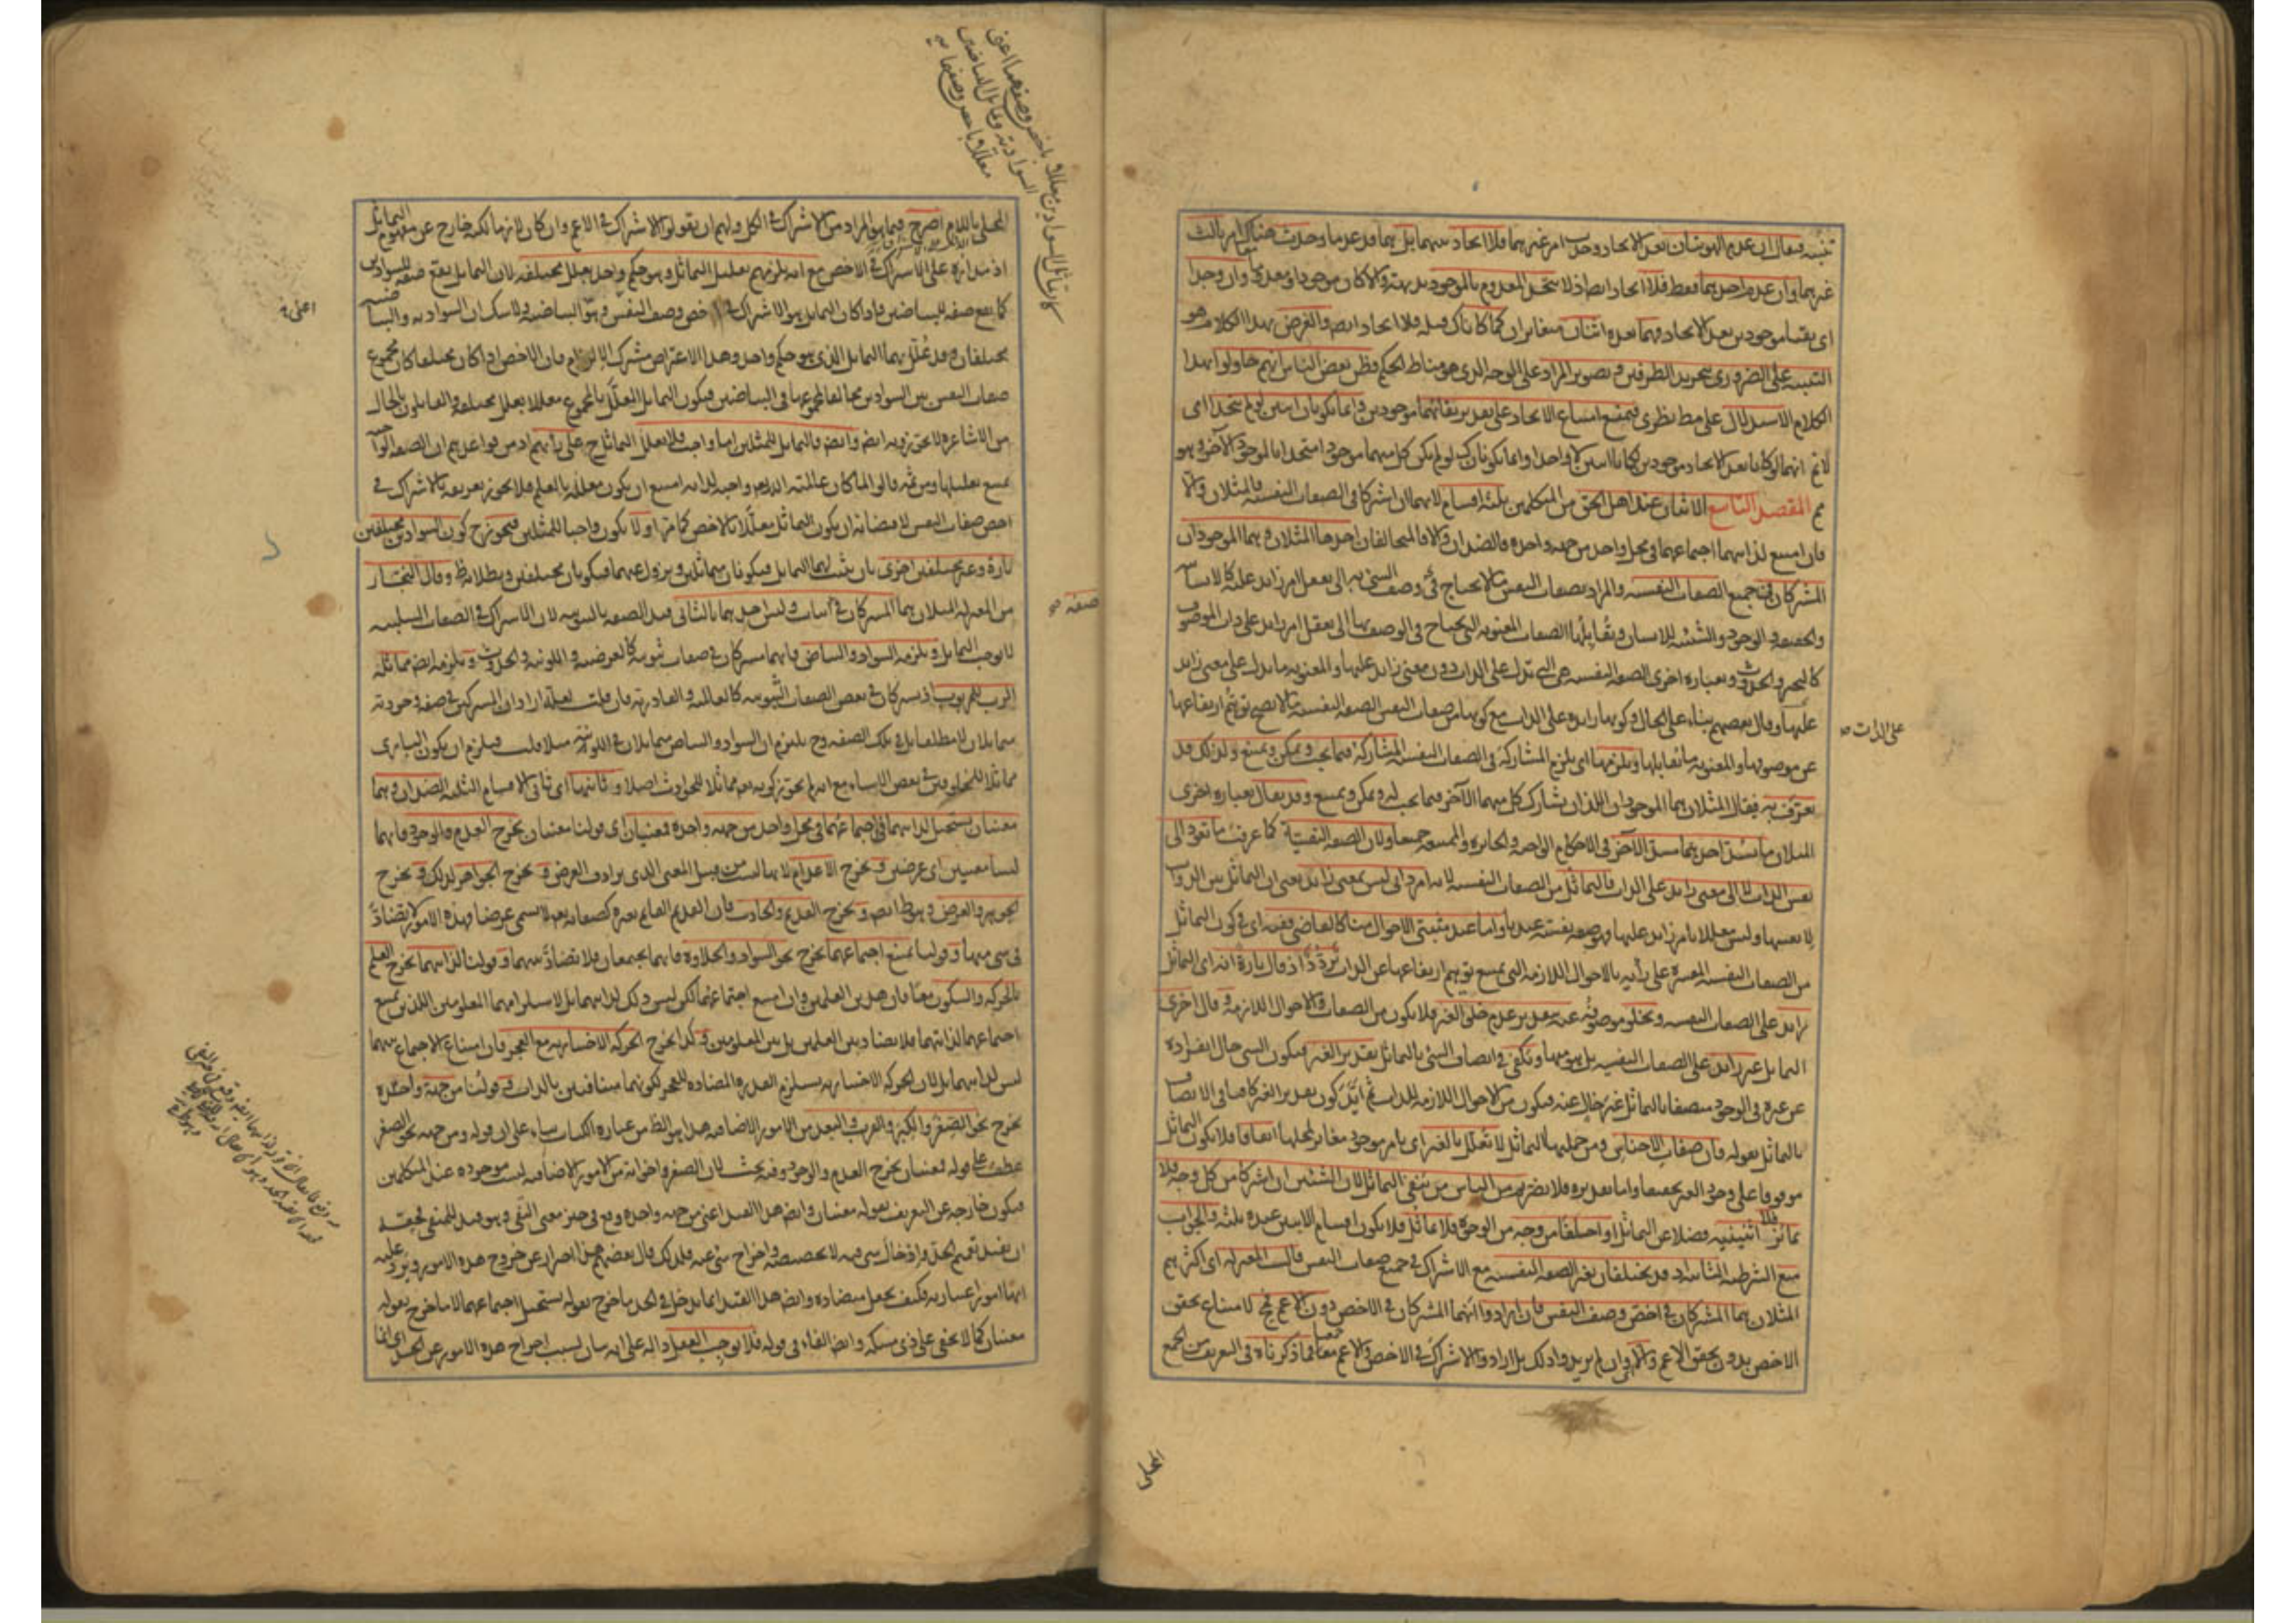 تنبيه فيقال ان عدم الهويتان بعد الاتحاد وحدث امر غيرهما فلا اتحاد بينهما بل هما قد عدما وحدث هناك امر ثالث
غيرهما وان عدم احدهما فقط فلا اتحاد ايضا اذ لا يتحد المعدوم بالموجود بديهة والا كان موجودا ومعدوما وان وجدا
اى بقيا موجودين بعد الاتحاد فهما بعده اثنان متغايران كما كانا كذلك قبله فلا اتحاد ايضا والغرض بهذا الكلام هو
التنبيه على الضرورى بتجريد الطرفين وتصوير المراد على الوجه الذى هو مناط الحكم فظن بعض الناس انهم حاولوا بهذا
الكلام الاستدلال على مط نظرى فيمنع امتناع الاتحاد على تقدير بقائهما موجودين وانما يكونان اثنين لو لم يتحدا اى
لا نم انهما لو كانا بعد الاتحاد موجودين كانا اثنين لا واحدا وانما يكونان كذلك لو لم يكن كل منهما موجودا متحدا بالموجود الآخر وهو
مم المقصد التاسع الاثنان عند اهل الحق من المتكلمين ثلثة اقسام لانهما ان اشتركا فى الصفات النفسية فالمثلان والا
فان امتنع لذاتيهما اجتماعهما فى محل واحد من جهة واحدة فالضدان والا فالمتخالفان احدها المثلان وهما الموجودان
المشتركان فى جميع الصفات النفسية والمراد بصفات النفس ما لا يحتاج فى وصف الشئ به الى تعقل امر زايد عليه كالانسانية
والحقيقة والوجود والشيئية للانسان ويقابلها الصفات المعنوية التى يحتاج فى الوصف بها الى تعقل امر زايد على ذات الموصوف
كالتحيز والحدوث وبعبارة اخرى الصفة النفسية هى التى تدل على الذات دون معنى زايد عليها والمعنوية ما يدل على معنى زايد
عليها وقال بعضهم بناء على الحال وكونها زايدة على الذات مع كونها من صفات النفس الصفة النفسية ما لا يصح توهم ارتفاعها
عن موصوفها والمعنوية ما يقابلها ويلزمها اى يلزم المشاركة فى الصفات النفسية المشاركة فيما يجب ويمكن ويمتنع ولذلك قد
يعرف به فيقال المثلان هما الموجودان اللذان يشارك كل منهما الآخر فيما يجب له ويمكن ويمتنع وقد يقال بعبارة اخرى
المثلان ما يسد احدهما مسد الآخر فى الاحكام الواجبة والجائزة والممتنعة جميعا ولان الصفة النفسية كما عرفت ما تعود الى
نفس الذات لا الى معنى زايد على الذات فالتماثل من الصفات النفسية لانه امر ذاتى ليس بمعنى زايد يعنى ان التماثل بين الذوات
لانفسها وليس معللا بامر زايد عليها فهو صفة نفسية عندنا واما عند مثبتى الاحوال منا كالقاضى ففيه اى فى كون التماثل
من الصفات النفسية المفسرة على رأيه بالاحوال اللازمة التى يمتنع توهم ارتفاعها عن الذات تردد اذ قال تارة انه اى التماثل
زايد على الصفات النفسية ويخلو موصوفه عنه بتقدير عدم خلق الغير فلا يكون من الصفات والاحوال اللازمة وقال اخرى
التماثل غير زايد على الصفات النفسية بل هو منها ويكفى فى اتصاف الشئ بالتماثل تقدير الغير فيكون الشئ حال انفراده
عن غيره فى الوجود متصفا بالتماثل غير خال عنه فيكون من الاحوال اللازمة للذات ثم ايد كون تقدير الغير كافيا فى الاتصاف
بالتماثل بقوله فان صفات الاجناس ومن جملتها التماثل لا تعلل بالغير اى بامر موجود مغاير لمحلها اتفاقا فلا يكون التماثل
موقوفا على وجود الغير تحقيقا واما تقديره فلا يضر ثم من الناس من ينفى التماثل لان الشيئين ان اشتركا من كل وجه فلا
تمايز فلا اثنينية فضلا عن التماثل او اختلفا من وجه من الوجوه فلا تماثل فلا يكون اقسام الاثنين عنده ثلثة والجواب
منع الشرطية الثانية اذ قد يختلفان بغير الصفة النفسية مع الاشتراك فى جميع صفات النفس قالت المعتزلة اى اكثرهم
المثلان هما المشتركان فى اخص وصف النفس فان ارادوا انهما المشتركان فى الاخص دون الاعم فمح لامتناع تحقق
الاخص بدون تحقق الاعم والا اى وان لم يريدوا ذلك بل ارادوا الاشتراك فى الاخص والاعم معا فما ذكرناه فى التعريف من الجمع
على الذات صح
المحلى
المحلى باللام اصرح فيما هو المراد من الاشتراك فى الكل ولهم ان يقولوا الاشتراك فى الاعم وان كان لازما لكنه خارج عن مفهوم التماثل
اذ مداره على الاشتراك فى الاخص مع انه يلزمهم تعليل التماثل وهو حكم واحد بعلل مختلفة لان التماثل يقع صفة للسوادين
كما يقع صفة للبياضين فاذا كان التماثل هو الاشتراك فى اخص وصف النفس وهو البياضية ولا شك ان السوادية والبياضية
مختلفان وقد علل بهما التماثل الذى هو حكم واحد وهذا الاعتراض مشترك الالزام فان الاخص اذا كان مختلفا كان مجموع
صفات النفس بين السوادين مخالفا لمجموعها فى البياضين فيكون التماثل المعلل بالمجموع معللا بعلل مختلفة والقائلون بالحال
من الاشاعرة لا يجوزونه ايضا وايضا فالتماثل للمثلين اما واجب فلا يعلل التماثل ح على رأيهم اذ من قواعدهم ان الصفة الواجبة
يمتنع تعليلها ومن ثمه قالوا لما كان عالمية الله تع واجبة لذاته امتنع ان يكون معللة بالعلم فلا يجوز تعريفه بالاشتراك فى
اخص صفات النفس لاقتضائه ان يكون التماثل معللا بالاخص كما مر او لا يكون واجبا للمثلين فيجوز ح كون السوادين مختلفين
تارة وغير مختلفين اخرى بان يثبت لهما التماثل فيكونان متماثلين ويزول عنهما فيكونان مختلفين وبطلانه ظ وقال النجار
من المعتزلة المثلان هما المشتركان فى صفة اثبات وليس احدهما بالثانى قيد الصفة بالثبوتية لان الاشتراك فى الصفات السلبية
لا يوجب التماثل ويلزمه السواد والبياض فانهما مشتركان فى صفات ثبوتية كالعرضية واللونية والحدوث ويلزمه ايضا مماثلة
الرب للمربوب اذ يشتركان فى بعض الصفات الثبوتية كالعالمية والقادرية فان قلت لعله اراد ان المشتركين فى صفة وجودية
متماثلان لا مطلقا بل فى تلك الصفة وح يلتزم ان السواد والبياض متماثلان فى اللونية مثلا قلت فيلزم ان يكون البارى
مماثلا للمخلوقين فى بعض الاشياء مع انه لم يجوز كونه تع مماثلا للحوادث اصلا وثانيها اى ثانى الاقسام الثلثة الضدان وهما
معنيان يستحيل لذاتيهما اجتماعهما فى محل واحد من جهة واحدة فمعنيان اى قولنا معنيان يخرج العدم والوجود فانهما
ليسا معنيين اى عرضين ويخرج الاعدام لانها ليست من قبيل المعنى الذى يرادف العرض ويخرج الجواهر لذلك ويخرج
الجوهر والعرض وهو ظ ايضا ويخرج القديم والحادث فان القديم القائم بغيره كصفاته تع لا يسمى عرضا فهذه الامور لا تضاد
فى شئ منها وقولنا يمتنع اجتماعهما يخرج نحو السواد والحلاوة فانهما يجتمعان فلا تضاد بينهما وقولنا لذاتيهما يخرج العلم
بالحركة والسكون معا فان هذين العلمين وان امتنع اجتماعهما لكن ليس ذلك لذاتيهما بل لاستلزامهما المعلومين اللذين يمتنع
اجتماعهما لذاتيهما فلا تضاد بين العلمين بل بين المعلومين وكذا يخرج الحركة الاختيارية مع العجز فان امتناع الاجتماع بينهما
ليس لذاتيهما بل لان الحركة الاختيارية يستلزم القدرة المضادة للعجز لكونهما متنافيين بالذات وقولنا من جهة واحدة
يخرج نحو الصغر والكبر والقرب والبعد من الامور الاضافية هذا هو الظ من عبارة الكتاب بناء على ان قوله ومن جهة نحو الصغر
عطف على قوله فمعنيان يخرج العدم والوجود وفيه بحث لان الصغر واخواته من الامور الاضافية ليست موجودة عند المتكلمين
فيكون خارجة عن التعريف بقوله معنيان وايضا هذا القيد اعنى من جهة واحدة وقع فى حيز معنى النفى وهو قيد للمنفى فحقه
ان يفيد تعميم الحد وادخال شئ فيه لا تخصيصه واخراج شئ عنه فلذلك قال بعضهم هذا احتراز عن خروج هذه الامور ويرد عليه
انها امور اعتبارية فكيف يجعل متضادة وايضا هذا القيد انما يدخل فى الحد ما خرج بقوله يستحيل اجتماعهما لا ما خرج بقوله
معنيان كما لا يخفى على ذى مسكة وايضا الفاء فى قوله فلا يوجب العقل دالة على انه بيان لسبب اخراج هذه الامور عن الحد اى انما
صفة صح